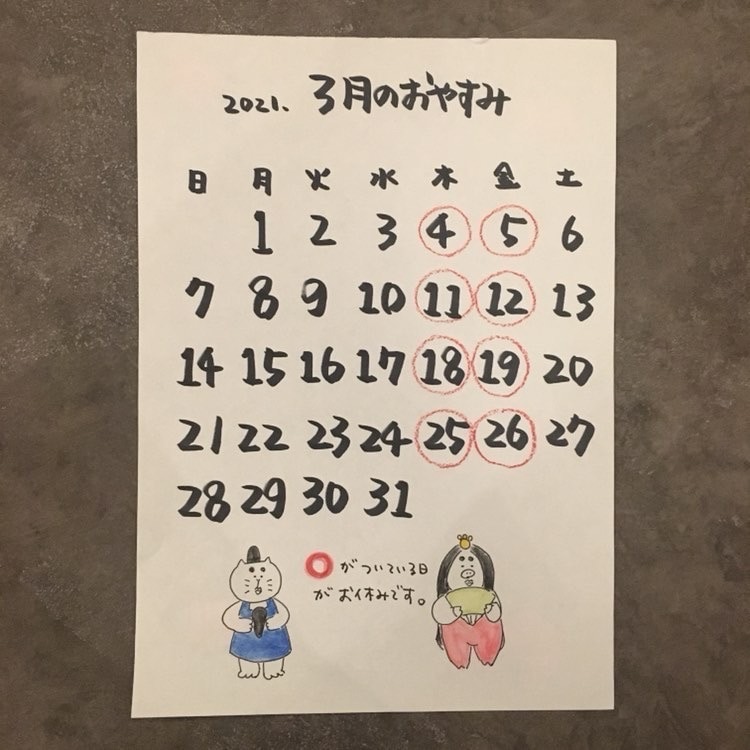 2021. 3月のおやすみ
日 月 火 水 木 金 土
1 2 3 4 5 6
7 8 9 10 11 12 13
14 15 16 17 18 19 20
21 22 23 24 25 26 27
28 29 30 31
がついている日
がお休みです。